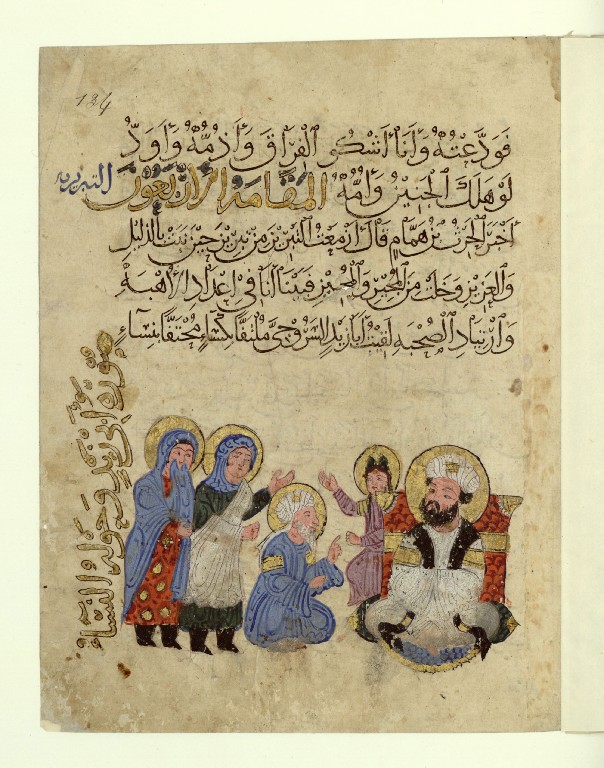 فودعته وأنا أشكو الفراق وأذمه وأود
لو هلك الجنين وأمه المقامة الأربعون التبريزية
أخبر الحرث بن همام قال أزمعت التبريز من تبريز حين نبت بالذليل
والعزيز وخلت من المجير والمجيز فبينا أنا في إعداد الأهبة
وارتياد الصحبة لقيت أبا زيد السروجي ملتفا بكساء محتفا بنساء
صورة أبي زيد وحوله النساء